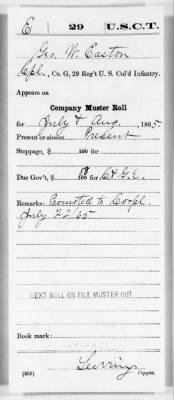 E 29 U.S.C.T.
Geo. W. Easton
Cpl., Co. G, 29 Reg't U. S. Col'd Infantry.
Appears on
Company Muster Roll
for July & Aug, 1865.
Present or absent Present
Stoppage, $ 100 for
Due Gov't, $ 100 for C & G.E.
Remarks: Promoted to Corpl
July 22/65
NEXT ROLL ON FILE MUSTER OUT
Book mark:
(858) Copyist.